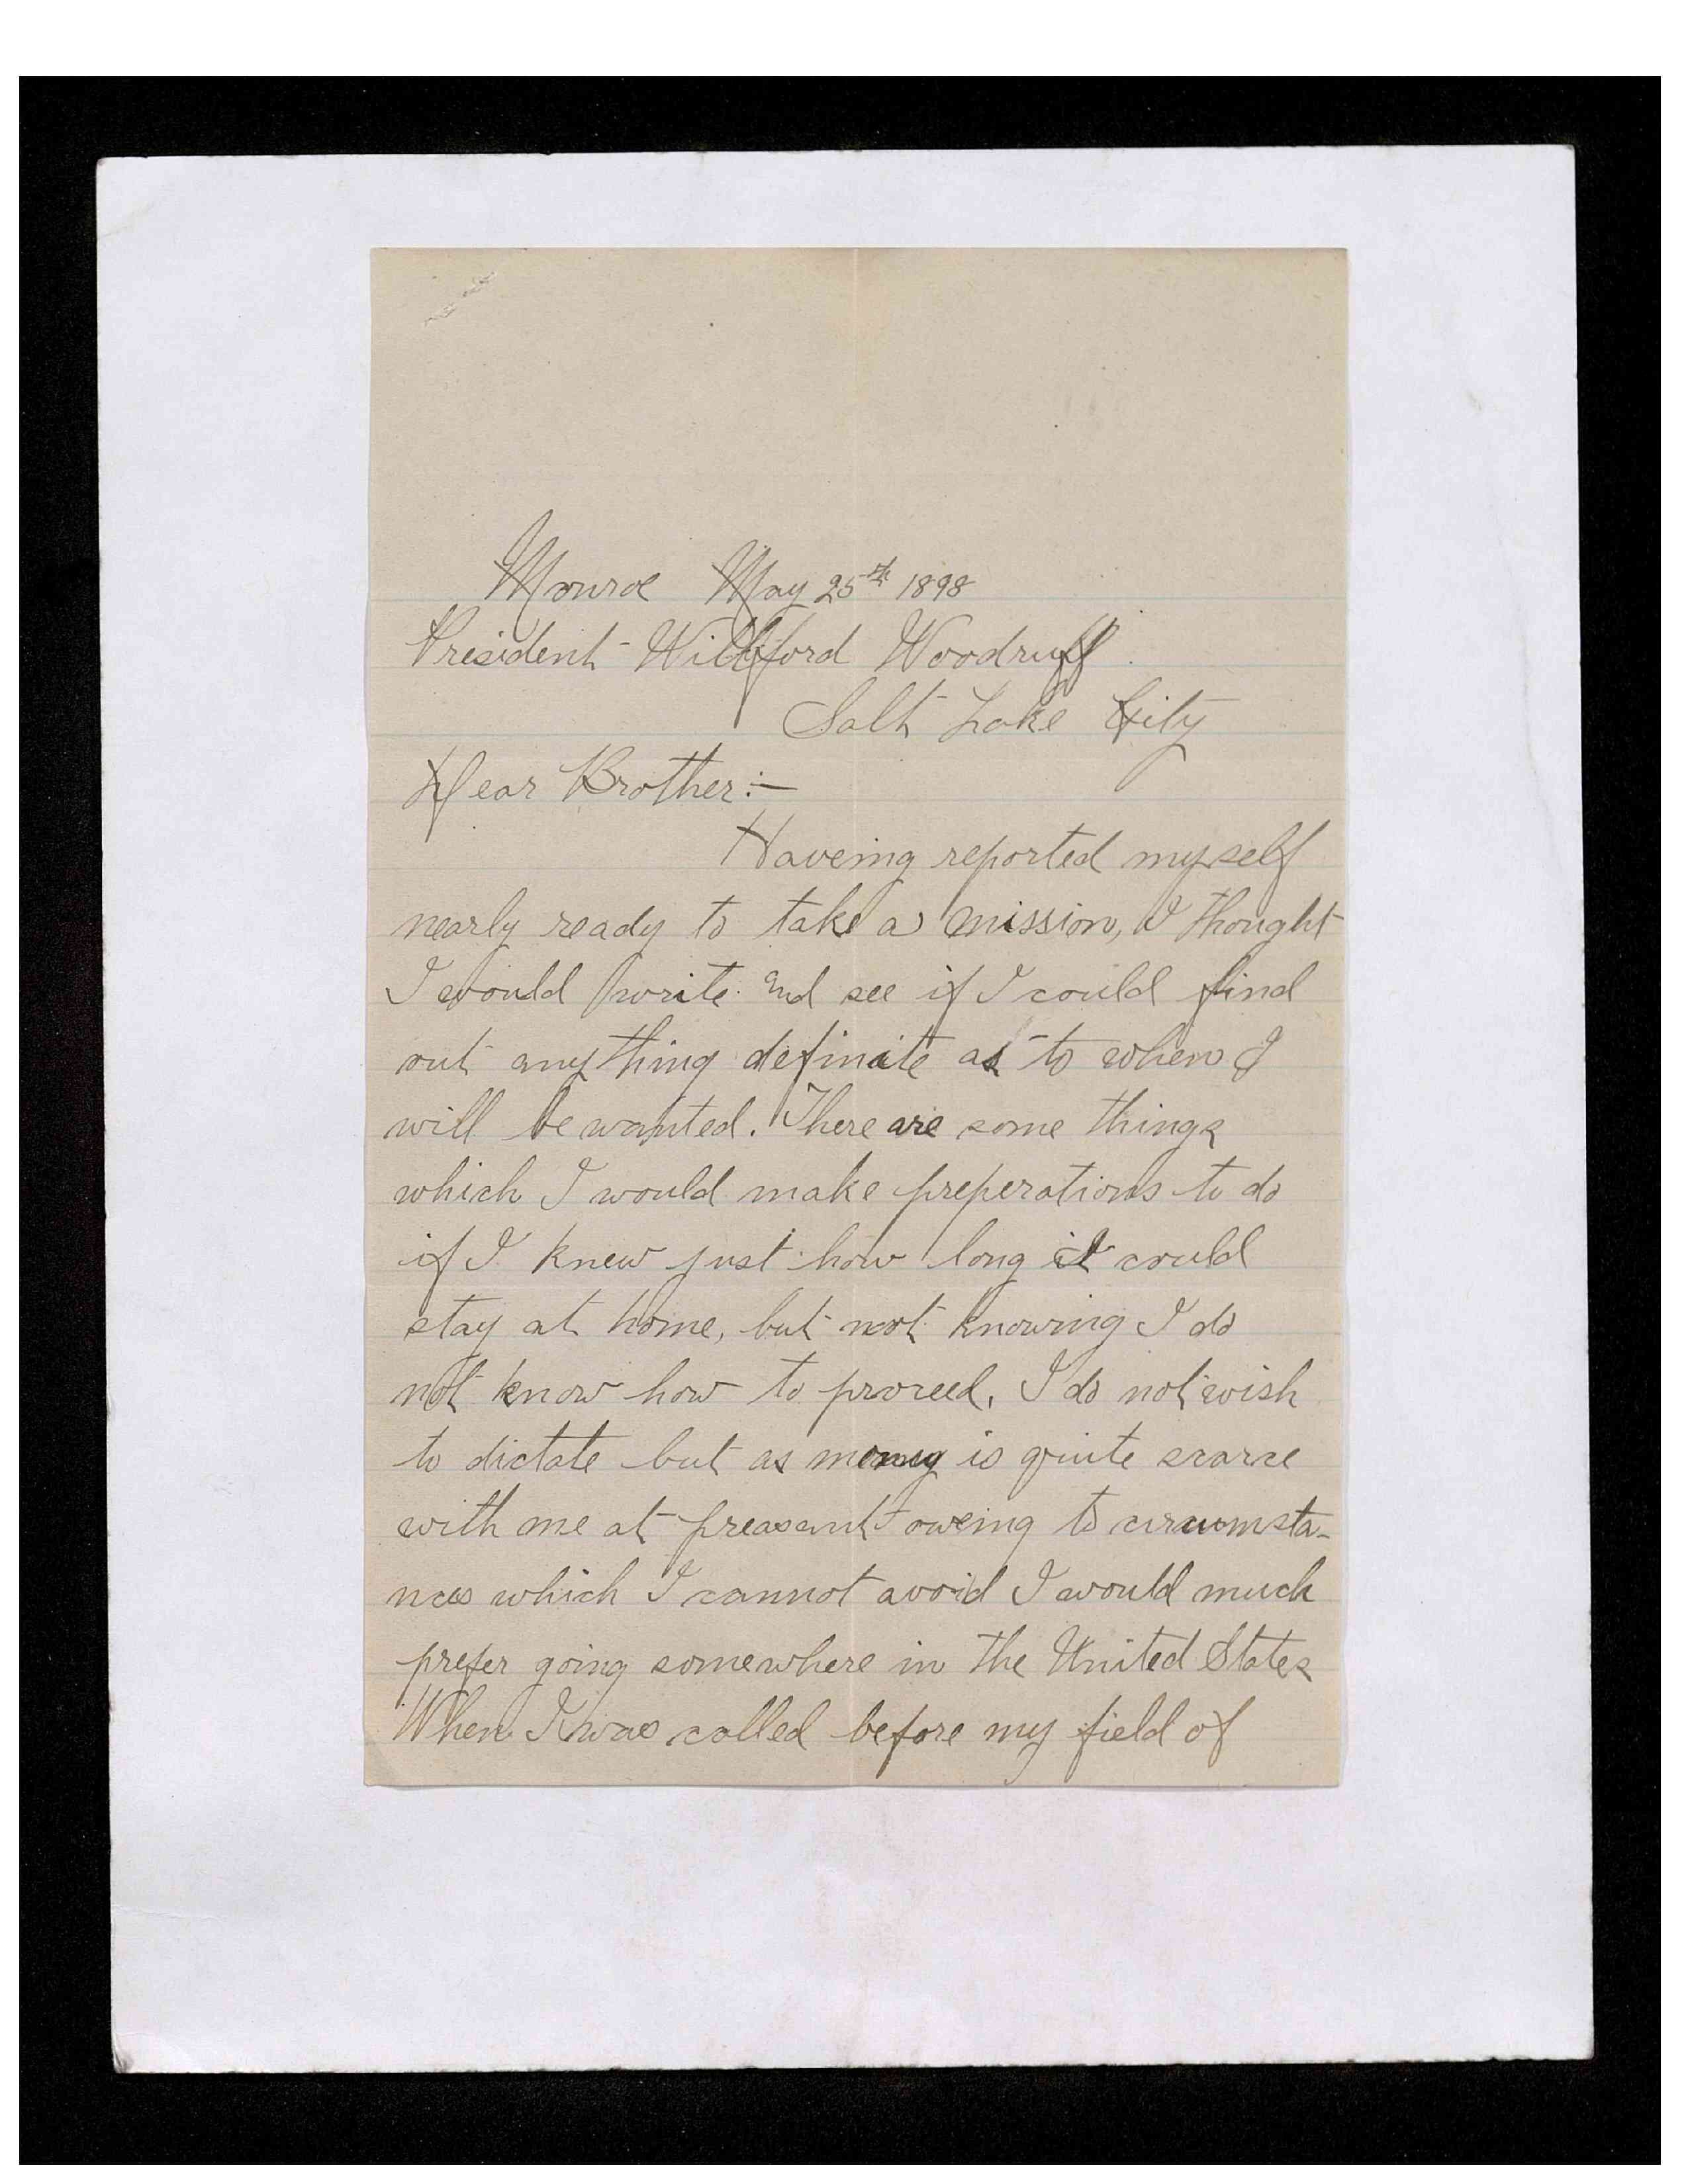 Monroe May 25th 1898
President Willford Woodruff
Salt Lake City
Dear Brother:-
Haveing reported myself
nearly ready to take a mission, I thought
I would write and see if I could find
out any thing definite as to when I
will be wanted. There are some things
which I would make preperations to do
if I knew just how long I could
stay at home, but not knowing I do
not know how to proceed. I do not wish
to dictate but as money is quite scarce
with me at preasant oweing to circumsta-
nces which I cannot avoid I would much
prefer going somewhere in the United States
When I was called before my field of